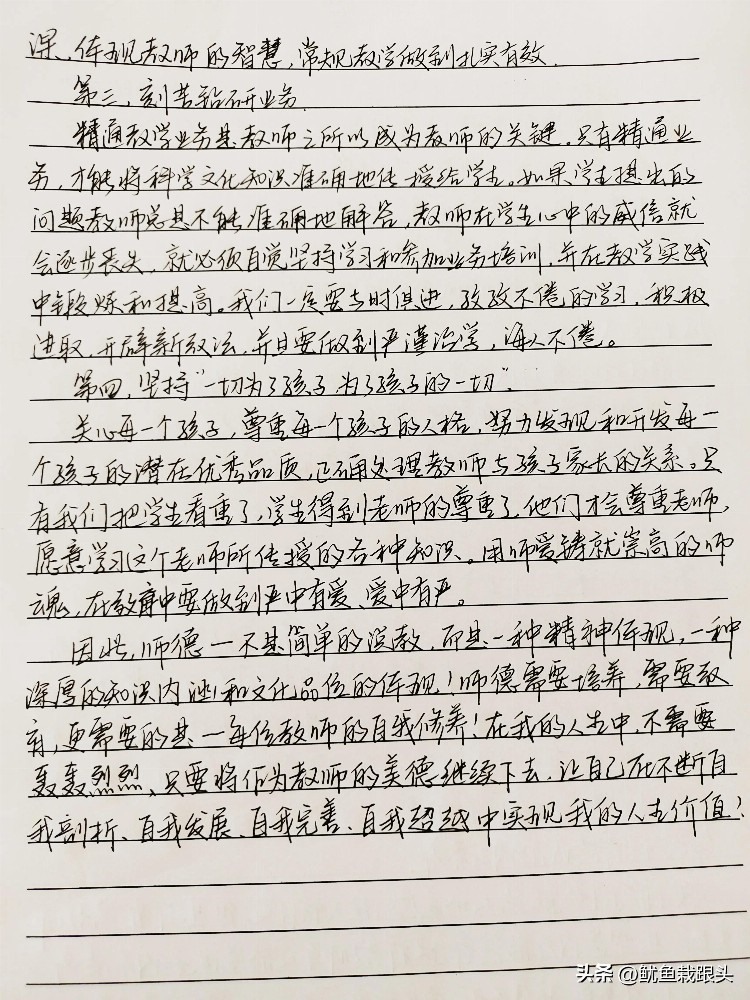 课，体现教师的智慧，常规教学做到扎实有效．
第三，刻苦钻研业务．
精通教学业务是教师之所以成为教师的关键．只有精通业
务，才能将科学文化知识准确地传授给学生。如果学生提出的
问题教师总是不能准确地解答，教师在学生心中的威信就
会逐步丧失，就必须自觉坚持学习和参加业务培训，并在教学实践
中锻炼和提高。我们一定要与时俱进，孜孜不倦的学习，积极
进取，开辟新教法，并且要做到严谨治学，诲人不倦。
第四，坚持"一切为了孩子，为了孩子的一切"．
关心每一个孩子，尊重每一个孩子的人格，努力发现和开发每一
个孩子的潜在优秀品质，正确处理教师与孩子家长的关系。只
有我们把学生看重了，学生得到老师的尊重了，他们才会尊重老师，
愿意学习这个老师所传授的各种知识。用师爱铸就崇高的师
魂，在教育中要做到严中有爱、爱中有严。
因此，师德一不是简单的说教，而是一种精神体现，一种
深厚的知识内涵和文化品位的体现！师德需要培养，需要教
育，更需要的是一每位教师的自我修养！在我的人生中，不需要
轰轰烈烈、只要将作为教师的美德继续下去，让自己在不断自
我剖析、自我发展、自我完善、自我超越中实现我的人生价值！
头条 @鱿鱼栽跟头